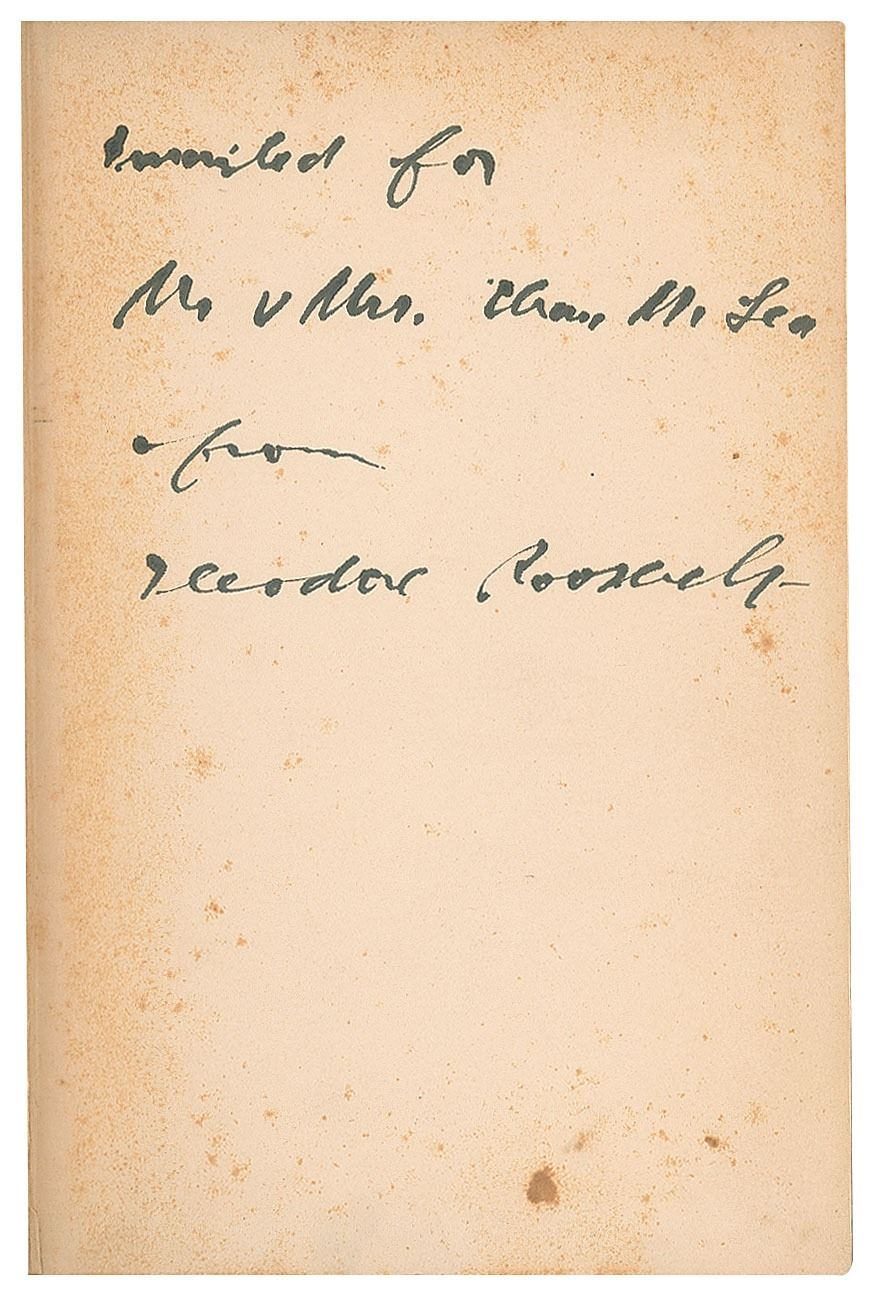 Inscribed for
Mr & Mrs. Chas. M. Lea
from
Theodore Roosevelt